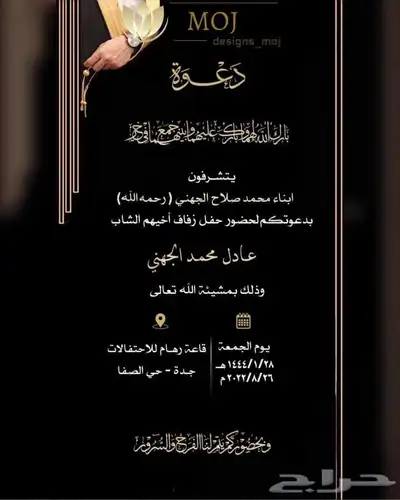 MOJ
designs_moj
دعوة
بارك الله لهما وبارك عليهما وجمع بينهما في خير
يتشرفون
ابناء محمد صلاح الجهني (رحمه الله)
بدعوتكم لحضور حفل زفاف أخيهم الشاب
عادل محمد الجهني
وذلك بمشيئة الله تعالى
يوم الجمعة
١٤٤٤/١/٢٨هـ
٢٠٢٢/٨/٢٦م
قاعة رهام للاحتفالات
جدة - حي الصفا
وبحضوركم يتم لنا الفرح والسرور
حراج